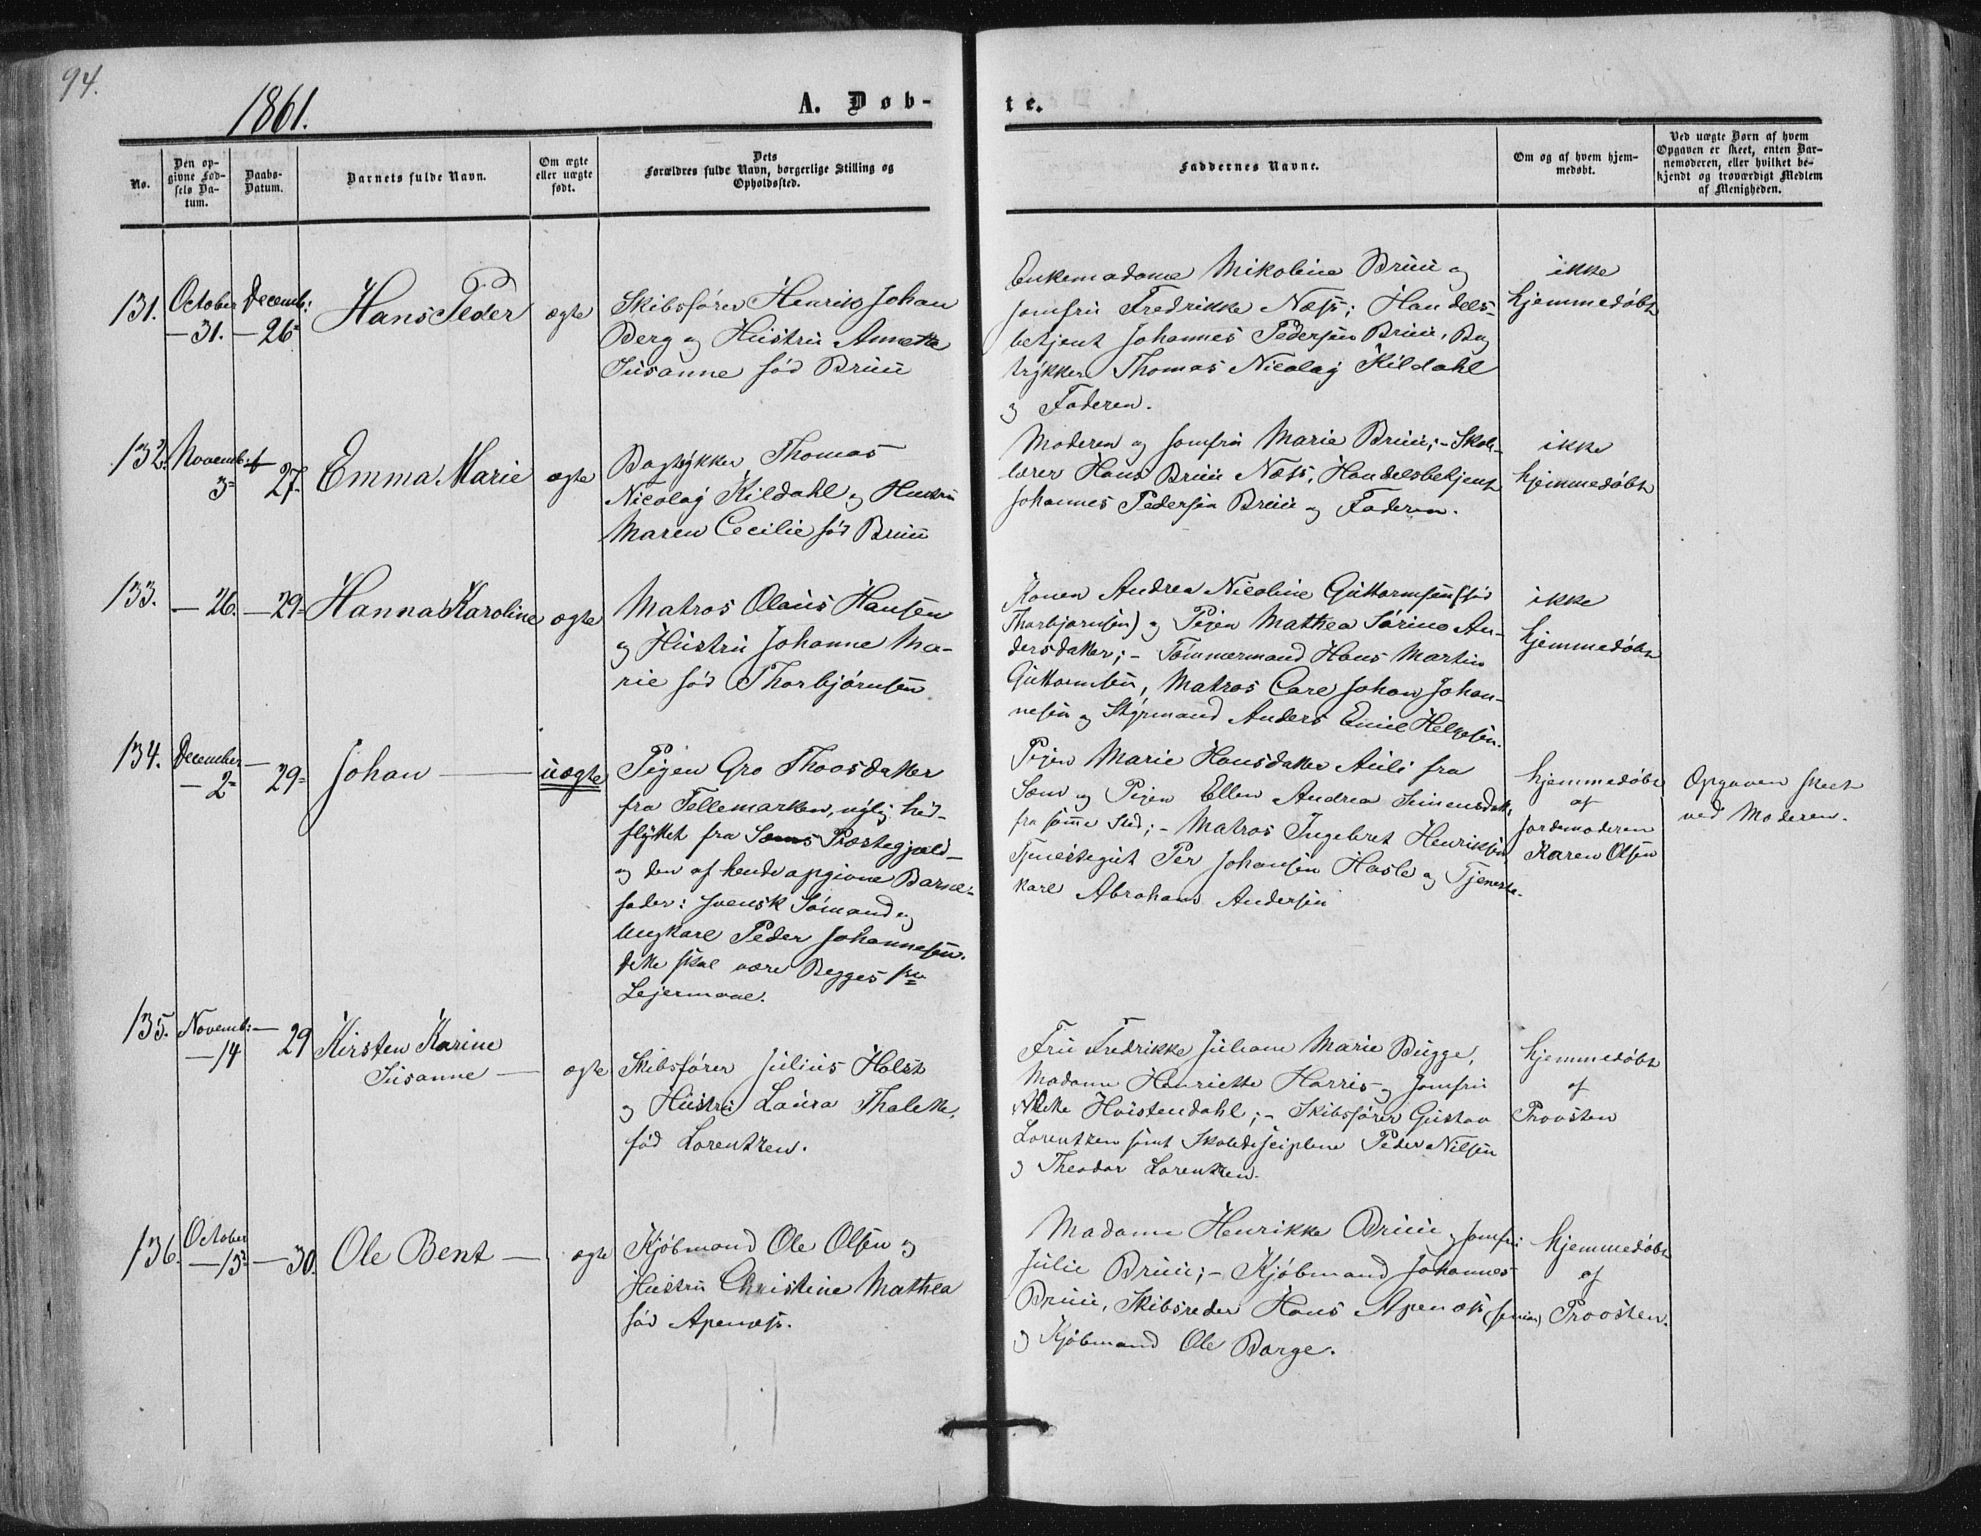 94.
1861.
A. Døb-
te.
No.
Den op-
givne Fød-
sels Da-
tum.
Daabs-
Datum.
Barnets fulde Navn.
Om ægte
eller uægte
født.
Dets
Forældres fulde Navn, borgerlige Stilling og
Opholdssted.
Faddernes Navne.
Om og af hvem hjem-
medøbt.
Ved uægte Børn af hvem
Opgaven er skeet, enten Bar-
nemoderen, eller hvilket be-
kjendt og troværdigt Medlem
af Menigheden.
131.
October
— 31.
Decemb:
— 26
Hans Peder
ægte
Skibsfører Henrik Johan
Berg og Hustru Annette
Susanne fød Bruu
Enkemadame Nikoline Bruu og
Jomfru Fredrikke Næss; Handels-
betjent Johannes Pedersen Bruu, Bog
trykker Thomas Nicolay Kildahl
og Faderen.
ikke
hjemmedøbt
132.
Novemb:
3
— 27
Emma Marie
ægte
Bogtrykker Thomas
Nicolay Kildahl og Hustru
Maren Cecilie fød Bruu
Moderen og Jomfru Marie Bruu; – Skol-
lærer Hans Bruu Næss, Handelsbetjent
Johannes Pedersen Bruu og Faderen.
ikke
hjemmedøbt
133.
— 26.
— 29
Hanna Karoline
ægte
Matros Olaus Hansen
og Hustru Johanne Ma-
rie fød Thorbjørnsen
Konen Andrea Nicoline Guttormsen (fød
Thorbjørnsen) og Pigen Mathea Sørine An-
dersdatter; – Tømmermand Hans Martin
Guttormsen, Matros Carl Johan Johan-
nesen og Styrmand Anders Emil Helgesen.
ikke
hjemmedøbt
134.
December
— 2
— 29
Johan
uægte
Pigen Gro Thorsdatter
fra Tellemarken, nylig hid-
flyttet fra Sems Præstegjæld
og den af hende opgivne Barne-
fader: svensk Sømand og
Ungkarl Peder Johannesen.
dette skal være Begges 1ste
Lejermaal.
Pigen Marie Hansdatter Auli fra
Sem og Pigen Ellen Andrea Simensdatt.
fra samme Sted; – Matros Ingebret Henriksen
Tjenestegut Per Johansen Hasle og Tjeneste-
karl Abraham Andersen
hjemmedøbt
af
Jordemoderen
Karen Olsen
Opgaven skeet
ved Moderen.
135.
Novemb:
— 14
— 29
Kirsten Karine
Susanne
ægte
Skibsfører Julius Holst
og Hustru Laura Thalette,
fød Lorentzen.
Fru Fredrikke Juliane Marie Bugge,
Madame Henriette Harris og Jomfru
Hvistendahl; – Skibsfører Gustav
Lorentzen samt Skoledisciplene Peder Nilsen
og Theodor Lorentzen.
hjemmedøbt
af
Provsten
136.
October
— 13
— 30.
Ole Bent
ægte
Kjøbmand Ole Olsen og
Hustru Christine Mathea
fød Apenæs.
Madame Henrikke Bruu og Jomfru
Julie Bruu; – Kjøbmand Johannes
Bruu, Skibsreder Hans Apenæs (senior)
og Kjøbmand Ole Borge.
hjemmedøbt
af
Provsten.